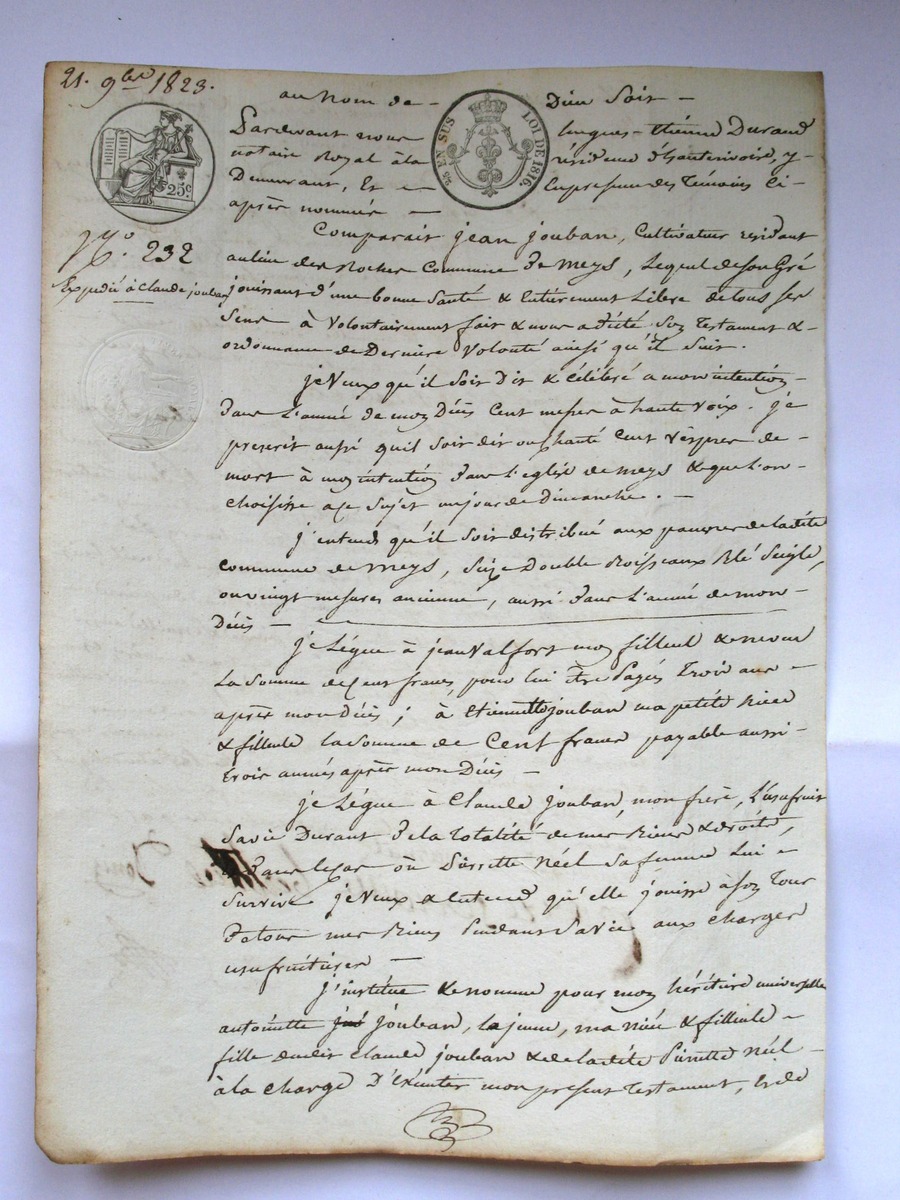 21. 9bre 1823.
au Nom de Dieu Soit
Pardevant nous Etienne Durand
notaire Royal à la résidence d'hauterivoire, y
Demeurant, Et En presence des Témoins Ci-
après nommés
25c
EN SUS LOI DE 1816.
N.° 232
Expedié à Claude jouban
Comparait jean jouban, Cultivateur residant
au lieu des Rocher Commune de Meys, Lequel de Son Gré
jouissant d'une bonne Santé & Entièrement Libre de tous ses
Sens à Volontairement fait & nous a dicté Son Testament &
ordonnance de Dernière Volonté ainsi qu'il Suit.
je Veux qu'il Soit Dit & Célébré a mon intention
dans L'année de mon Décès Cent messes à haute Voix. je
prescrit aussi quil soit dit ou chanté Cent Vêspres de
mort à mon intention dans L'eglise de Meys & que L'on
choisisse a ce Sujet un jour de Dimanche.
j'entends qu'il Soit distribué aux pauvres de ladite
Commune de Meys, Seize Double Boisseaux Blé Seigle,
ou vingt mesures ancienne, aussi dans L'année de mon
Décès
je Lègue à jean Valfort mon filleul & neveu
La Somme de Cent francs, pour lui être Payés trois ans
après mon Décès; à Etiennette jouban ma petite Nièce
& filleule la Somme de Cent francs payable aussi
trois années après mon Décès
je Lègue à Claude jouban, mon frère, L'usufruit
Sa vie Durant de la totalité de mes Biens & droits,
& dans le Cas où Pierrette Néel Sa femme Lui
Survive je Veux & Entend qu'elle jouisse à Son Tour
de tous mes Biens Pendant Sa vie aux Charges
usufruitières
j'institue & nomme pour mon hérétière universelle
antoinette jouban, la jeune, ma nièce & filleule
fille dudit Claude jouban & de ladite Pierrette Néel
à la Charge D'Exécuter mon present Testament, Et de